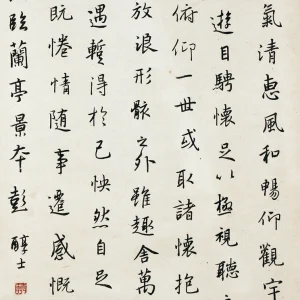 氣清惠風和暢仰觀宇
遊目騁懷足以極視聽
俯仰一世或取諸懷抱
放浪形骸之外雖趣舍萬
遇暫得於己怏然自足
既惓情随事遷感慨
臨蘭亭景本彭醇士